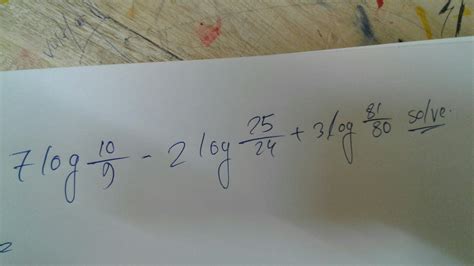 7 log 10/9 - 2 log 25/24 + 3 log 81/80 solve.
2